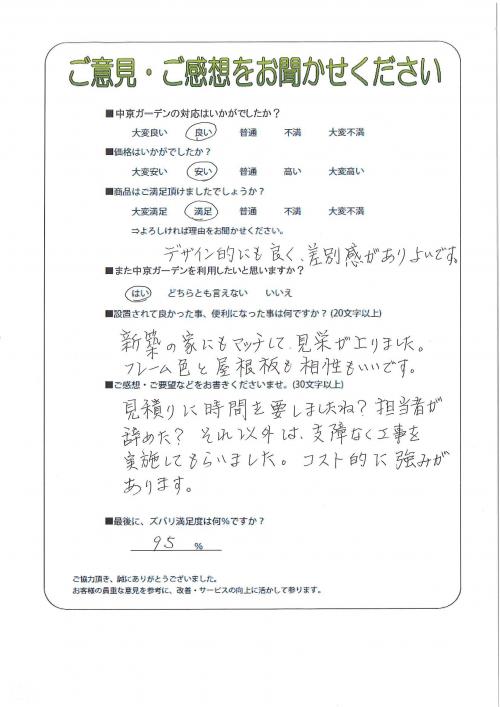 ご意見・ご感想をお聞かせください
■中京ガーデンの対応はいかがでしたか？
大変良い 良い 普通 不満 大変不満
■価格はいかがでしたか？
大変安い 安い 普通 高い 大変高い
■商品はご満足頂けましたでしょうか？
大変満足 満足 普通 不満 大変不満
⇒よろしければ理由をお聞かせください。
デザイン的にも良く、差別感がありよいです。
■また中京ガーデンを利用したいと思いますか？
はい どちらとも言えない いいえ
■設置されて良かった事、便利になった事は何ですか？(20文字以上)
新築の家にもマッチして、見栄が上りました。
フレーム色と屋根板も相性もいいです。
■ご感想・ご要望などをお書きくださいませ。(30文字以上)
見積りに時間を要しましたね？担当者が
辞めた？それ以外は、支障なく工事を
実施してもらいました。コスト的に強みが
あります。
■最後に、ズバリ満足度は何％ですか？
95 ％
ご協力頂き、誠にありがとうございました。
お客様の貴重な意見を参考に、改善・サービスの向上に活かして参ります。